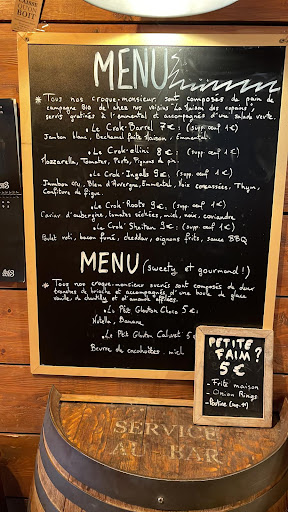 LAISSE
QU'ON
BOIT
MENU
* Tous nos croque-monsieur sont composés de pain de
campagne Bio de chez nos voisins "La Maison des copains",
servis gratinés à l'emmental et accompagnés d'une salade verte.
• Le Crok'Barrel 7€: (supp. oeuf 1€)
Jambon blanc, Béchamel faite Maison, Emmental
• Le Crok'ellini 8€: (supp. oeuf 1€)
Mozzarella, Tomates, Pesto, Pignons de pin.
• Le Crok'Ingalls 9€: (supp. oeuf 1€)
Jambon cru, Bleu d'Auvergne, Emmental, Noix concassées, Thym,
Confiture de figue.
• Le Crok'Roots 9€: (supp. oeuf 1€)
Caviar d'aubergine, tomates séchées, miel, noix, coriandre
• Le Crok'Sheitan 9€: (supp. oeuf 1€)
Poulet roti, bacon fumé, cheddar, oignons frits, sauce BBQ
MENU (sweety et gourmand!)
* Tous nos croque-monsieur sucrés sont composés de deux
tranches de brioche et accompagnés d'une boule de glace
vanille, de chantilly et d'amande effilées.
• Le P'tit Glouton Choco 5€:
Nutella, Banane
• Le P'tit Glouton Cahuet 5€:
Beurre de cacahuètes, miel
PETITE
FAIM ?
5€
- Frite maison
- Onion Rings
SERVICE
AU BAR